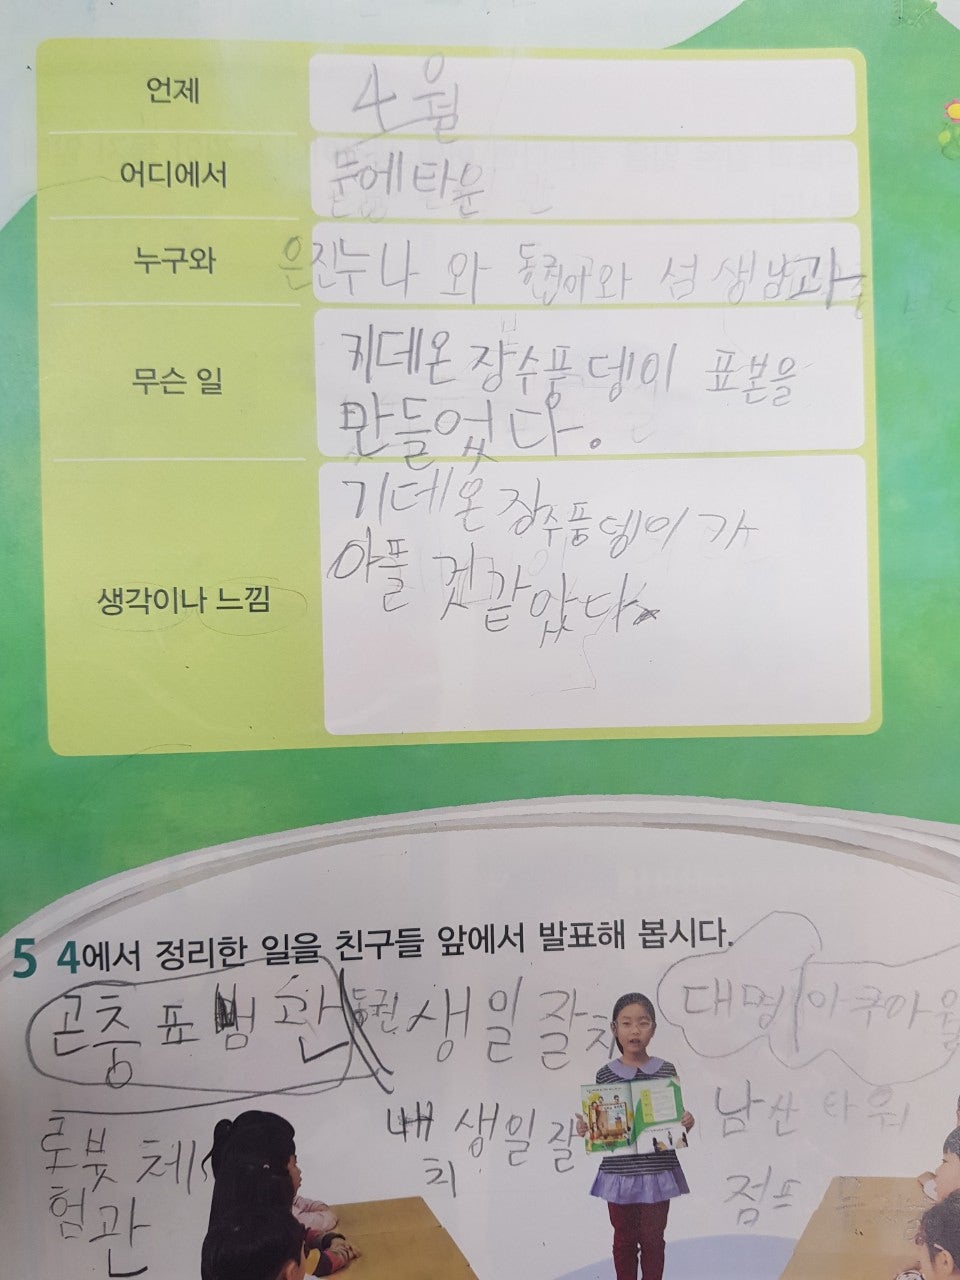 언제
4월
어디에서
타운
누구와
은진누나 와 동권이와 섬 생님과
무슨 일
키데온 장수풍뎅이 표본을
만들었다.
생각이나 느낌
기데온 장수풍뎅이 가
아풀 것 같았다.
5 4에서 정리한 일을 친구들 앞에서 발표해 봅시다.
곤충 표 관 동권 생일 잘치 대명 아쿠아월
로봇 체
험관
생일 잘
치
남산 타워
점프